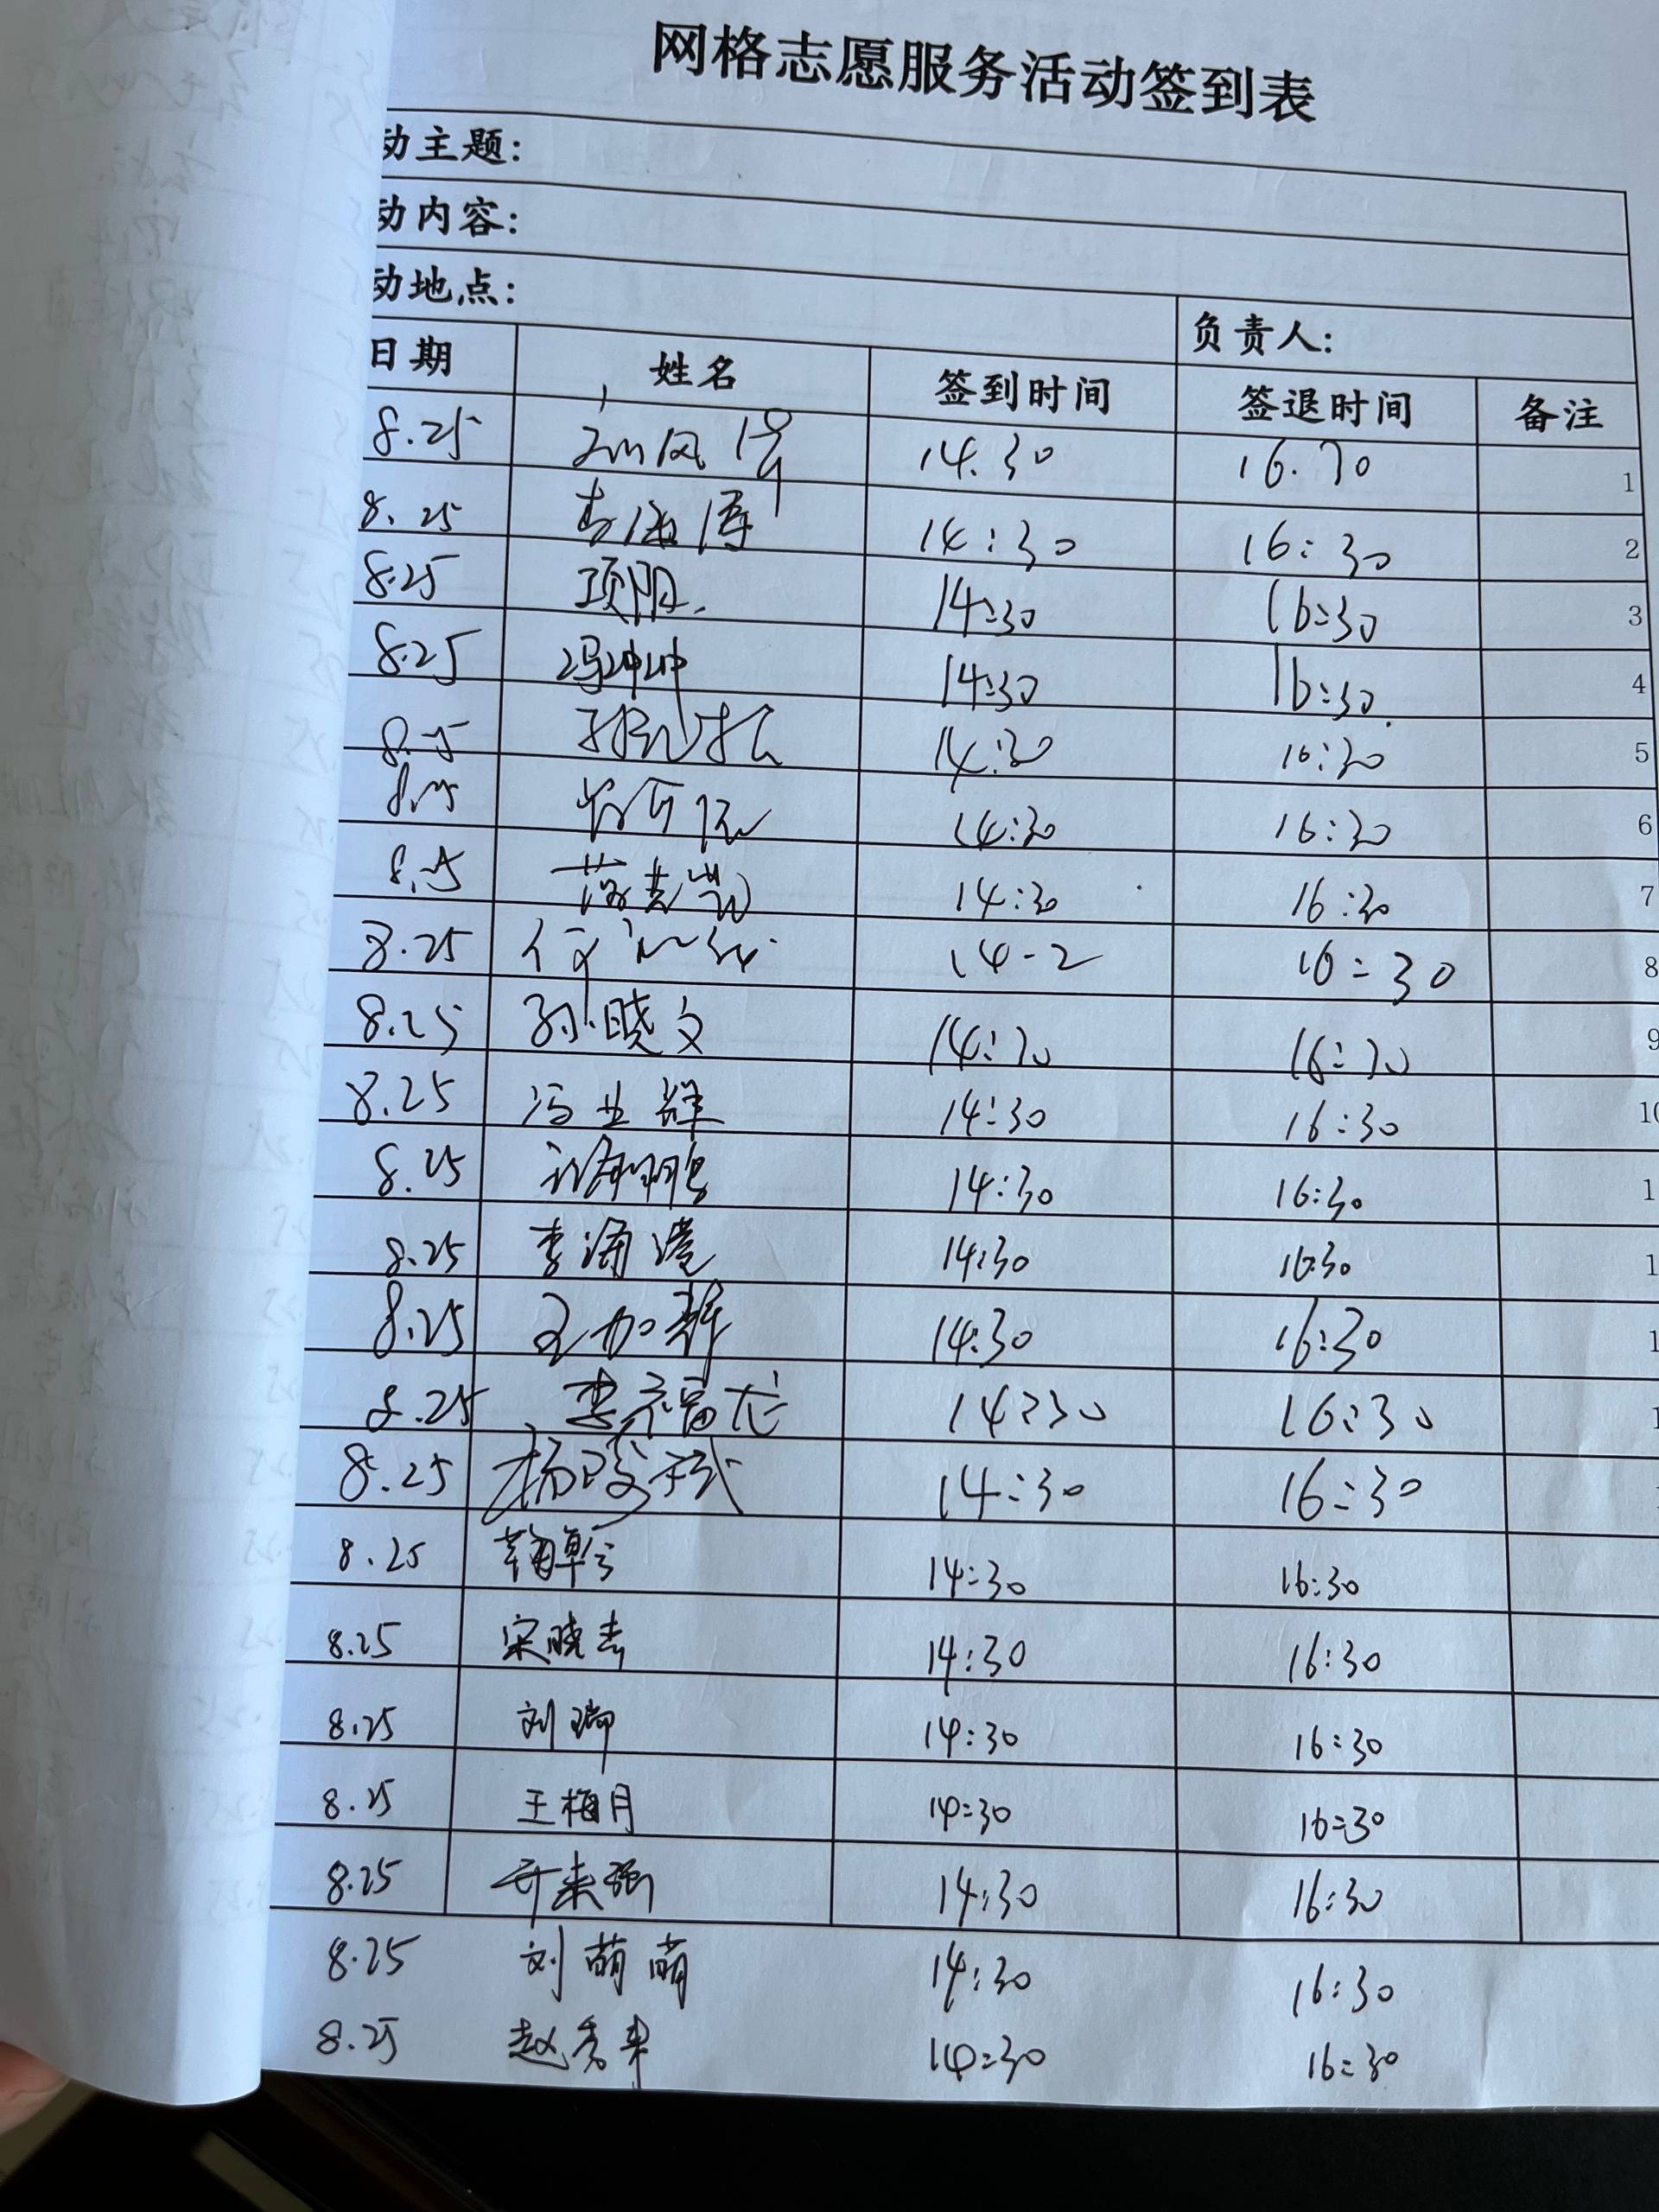 网格志愿服务活动签到表
动主题:
动内容:
动地点:
负责人:
日期 姓名 签到时间 签退时间 备注
8.25 14.30 16.30 1
8.25 李海涛 14:30 16:30 2
8.25 项阳 14:30 16:30 3
8.25 冯坤坤 14:30 16:30 4
8.25 14:30 16:30 5
8.25 14:30 16:30 6
8.25 14:30 16:30 7
8.25 14-2 16:30 8
8.25 孙晓文 14:30 16:30 9
8.25 冯业群 14:30 16:30 10
8.25 14:30 16:30 1
8.25 李涌滢 14:30 16:30 1
8.25 王加群 14:30 16:30 1
8.25 李福龙 14:30 16:30 1
8.25 14:30 16:30
8.25 14:30 16:30
8.25 宋晓志 14:30 16:30
8.25 刘瑞 14:30 16:30
8.25 王梅月 14:30 16:30
8.25 亓来强 14:30 16:30
8.25 刘萌萌 14:30 16:30
8.25 赵秀来 14:30 16:30